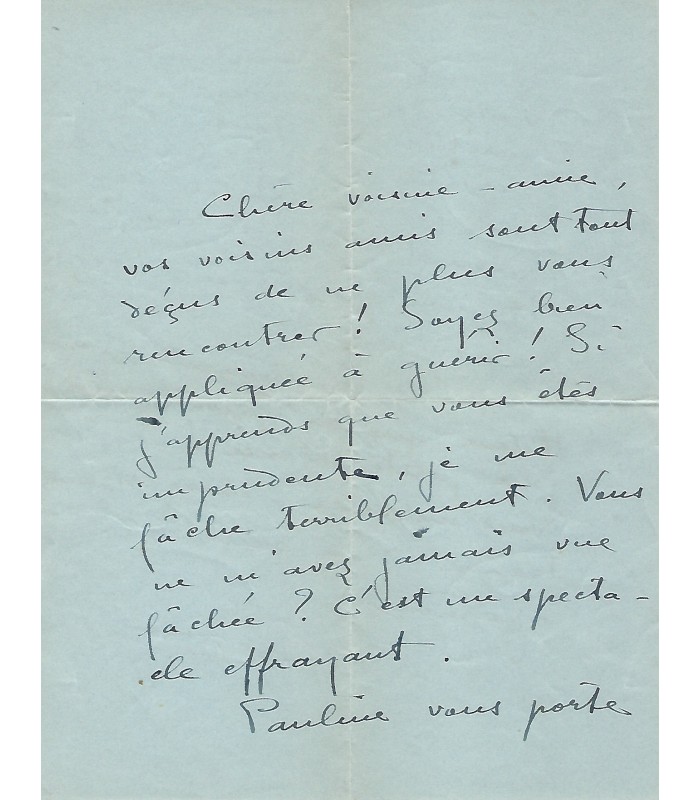 Chère voisine-amie,
vos voisins amis sont tout
déçus de ne plus vous
rencontrer ! Soyez bien
appliquée à guérir ! Si
j'apprends que vous êtes
imprudente, je me
fâche terriblement. Vous
ne m'avez jamais vue
fâchée ? C'est un specta-
cle effrayant.
Pauline vous porte